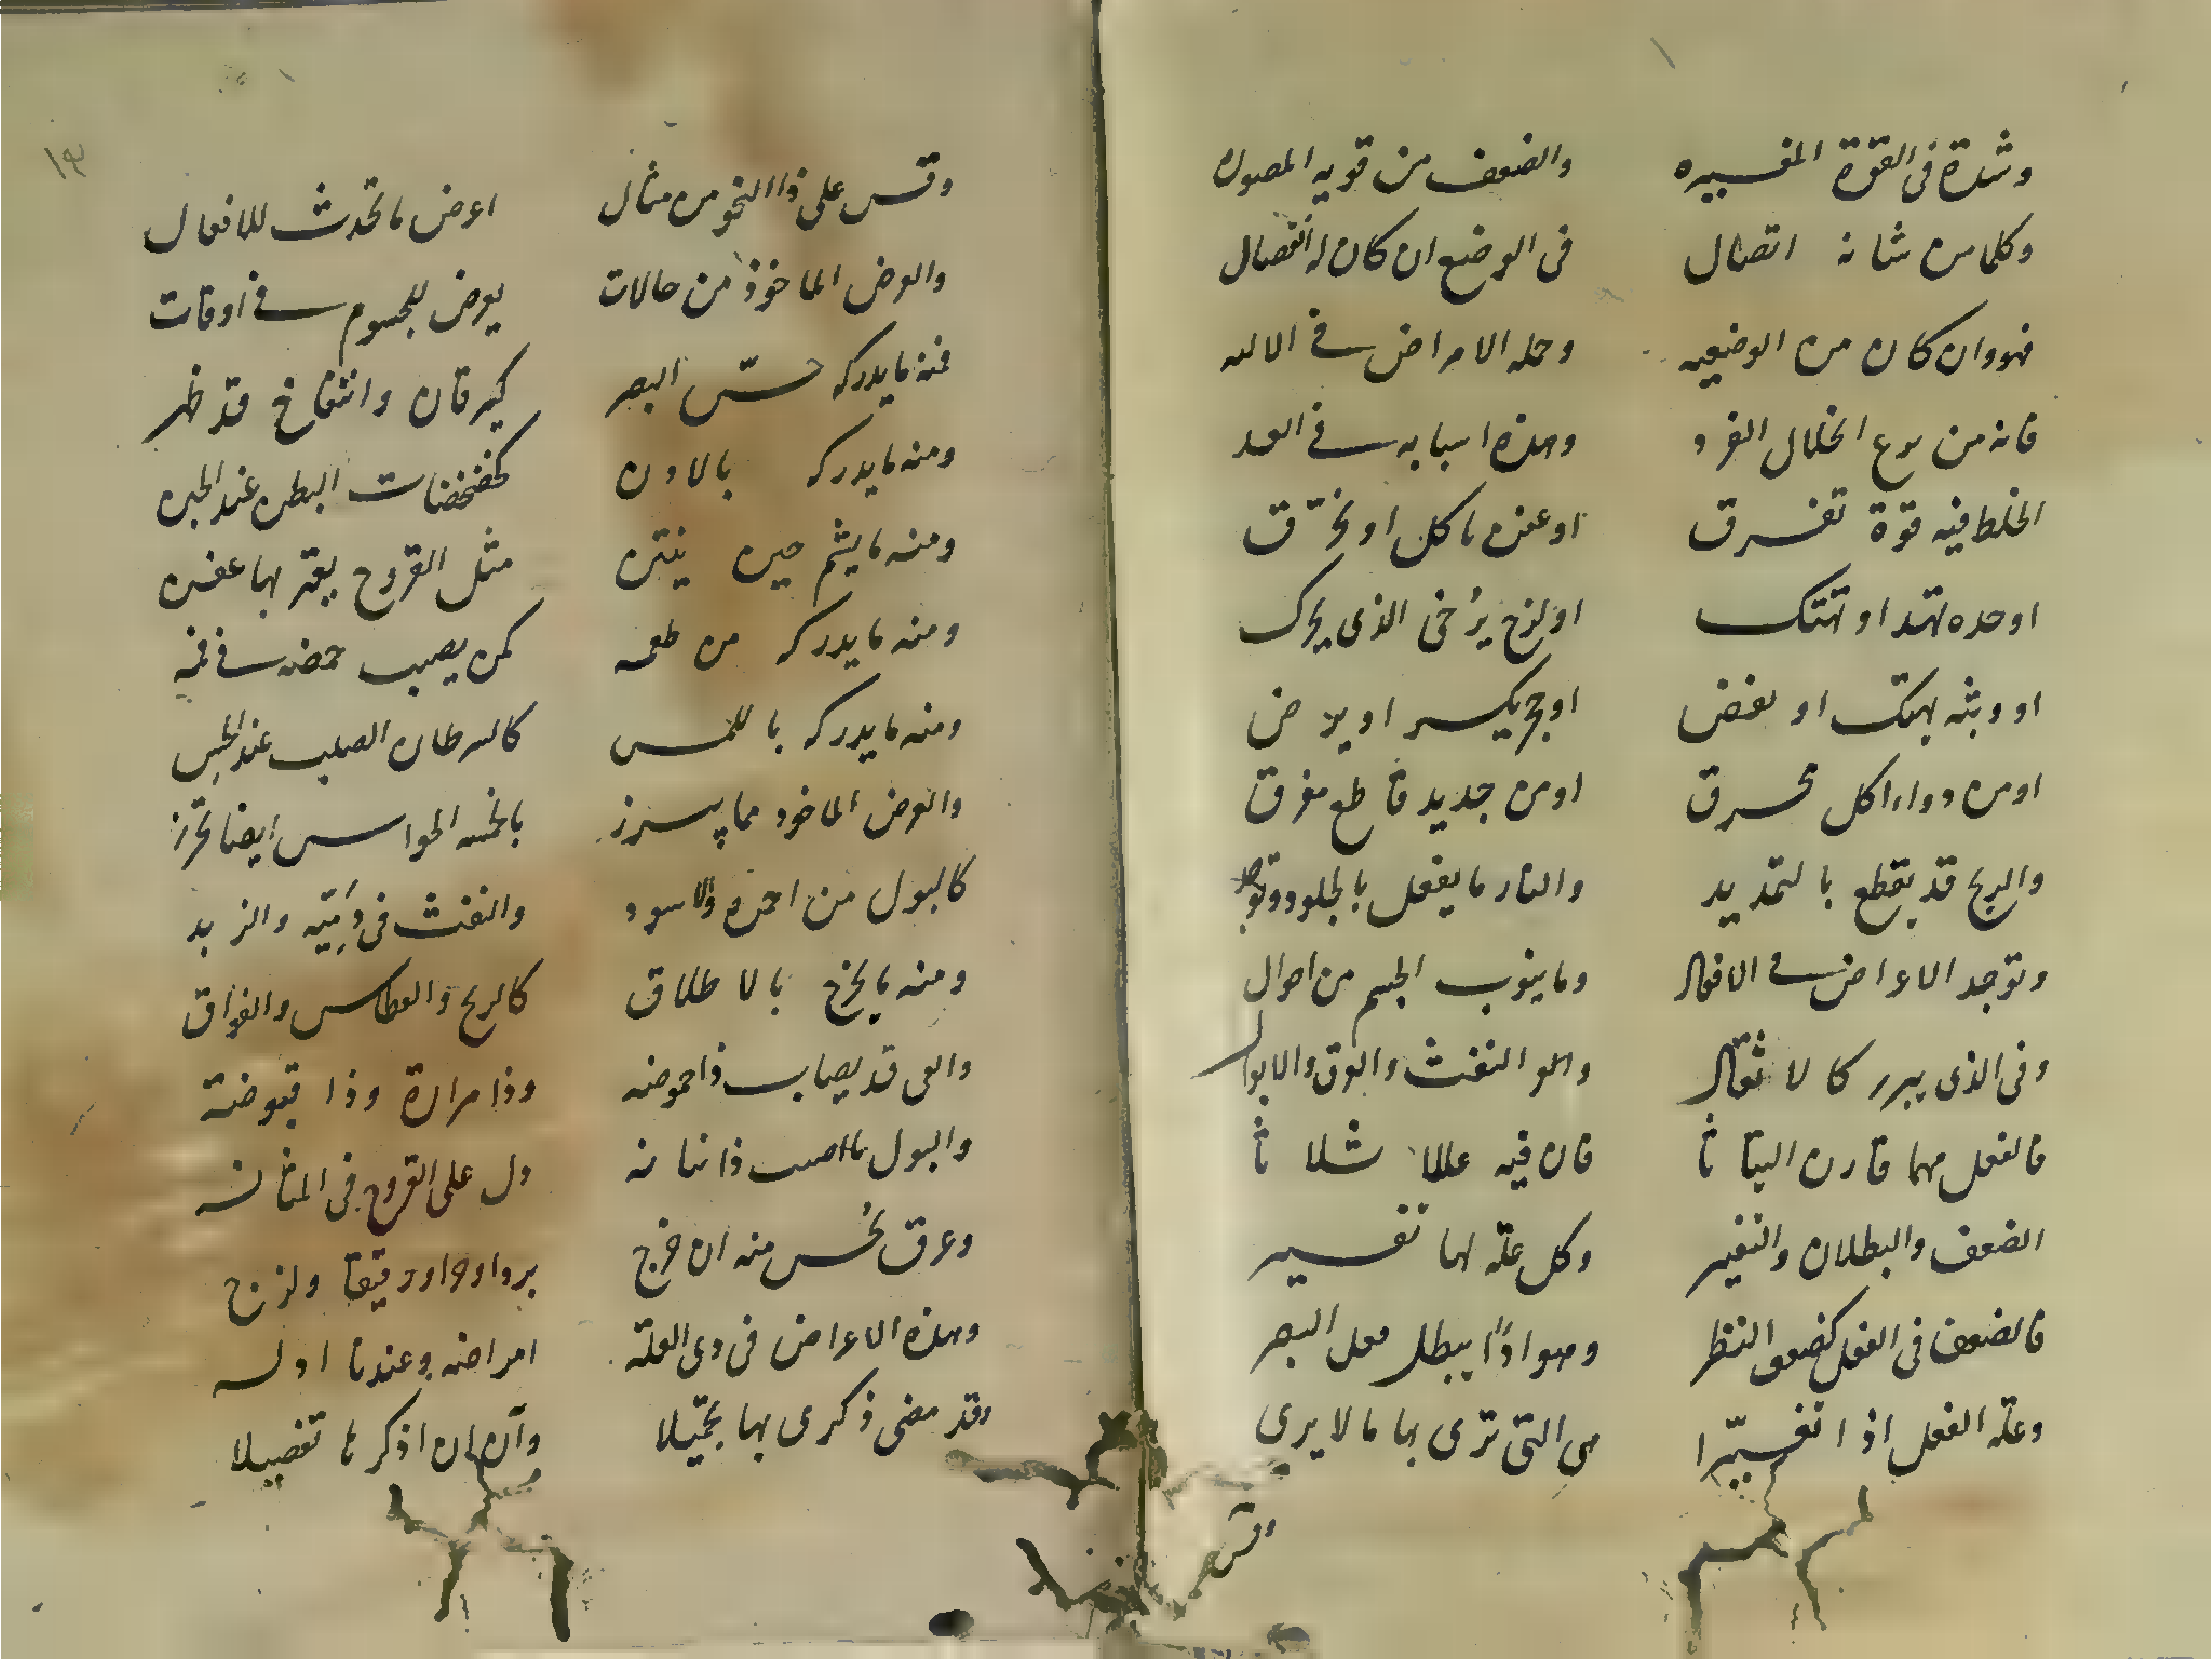 وشدة في القوة المغيره والضعف من قويه المصوره
وكلما من شانه اتصال في الوضع ان كان له انفصال
فهو وان كان من الوضعيه وجمله الامراض في الاليه
فانه من نوع انحلال الفرد وهذه اسبابه في العد
الخلط فيه قوة تفرق او عفن ياكل او يحرق
او حده تهتد او تهتك او لزج يرخى الذى يحرك
او وثبه تهتك او تفض او حجر يكسر او يرض
او من دواء اكل محرق او من حديد قاطع مفرق
والريح قد يقطع بالتمديد والنار ما يفعل بالجلود
وتوجد الاعراض في الافعال وما ينوب الجسم من احوال
وفي الذى يبرز كالاثقال والنفث والعرق والابوال
فالفعل مهما قارن التياثا فان فيه عللا ثلاثا
الضعف والبطلان والتغيير وكل علة لها تفسير
فالضعف في الفعل كضعف النظر وهو اذا يبطل فعل البصر
وعلة الفعل اذا تغيرا هى التي ترى بها ما لا يرى
وقس
١٣
وقس على ذا النحو من مثال اعرض ما تحدث للافعال
والعرض الماخوذ من حالات يعرض للجسوم في اوقات
فمنه ما يدركه حس البصر كيرقان وانتفاخ قد ظهر
ومنه ما يدركه بالاذن كخضخضات البطن عند الحبن
ومنه ما يشم حين ينتن مثل القروح يعتريها عفن
ومنه ما يدركه من طعمه كمن يصيب حمضه في فمه
ومنه ما يدركه باللمس كالسرطان الصلب عند الجس
والعرض الماخوذ مما يبرز بالخمسه الحواس ايضا يحرز
كالبول من احمره والاسود والنفث في دميّه والزبد
ومنه ما يخرج بالاطلاق كالريح والعطاس والفواق
والقى قد يصاب ذا حموضه وذا مرارة وذا قبوضة
والبول ما اصيب ذا نتانه دل على القروح في المثانه
وعرق يحس منه ان خرج بردا وحرا ورقيقا ولزج
وهذه الاعراض في ذى العلة امراضه وعندنا ادله
وقد مضى ذكرى بها تجميلا وآن ان اذكرها تفصيلا